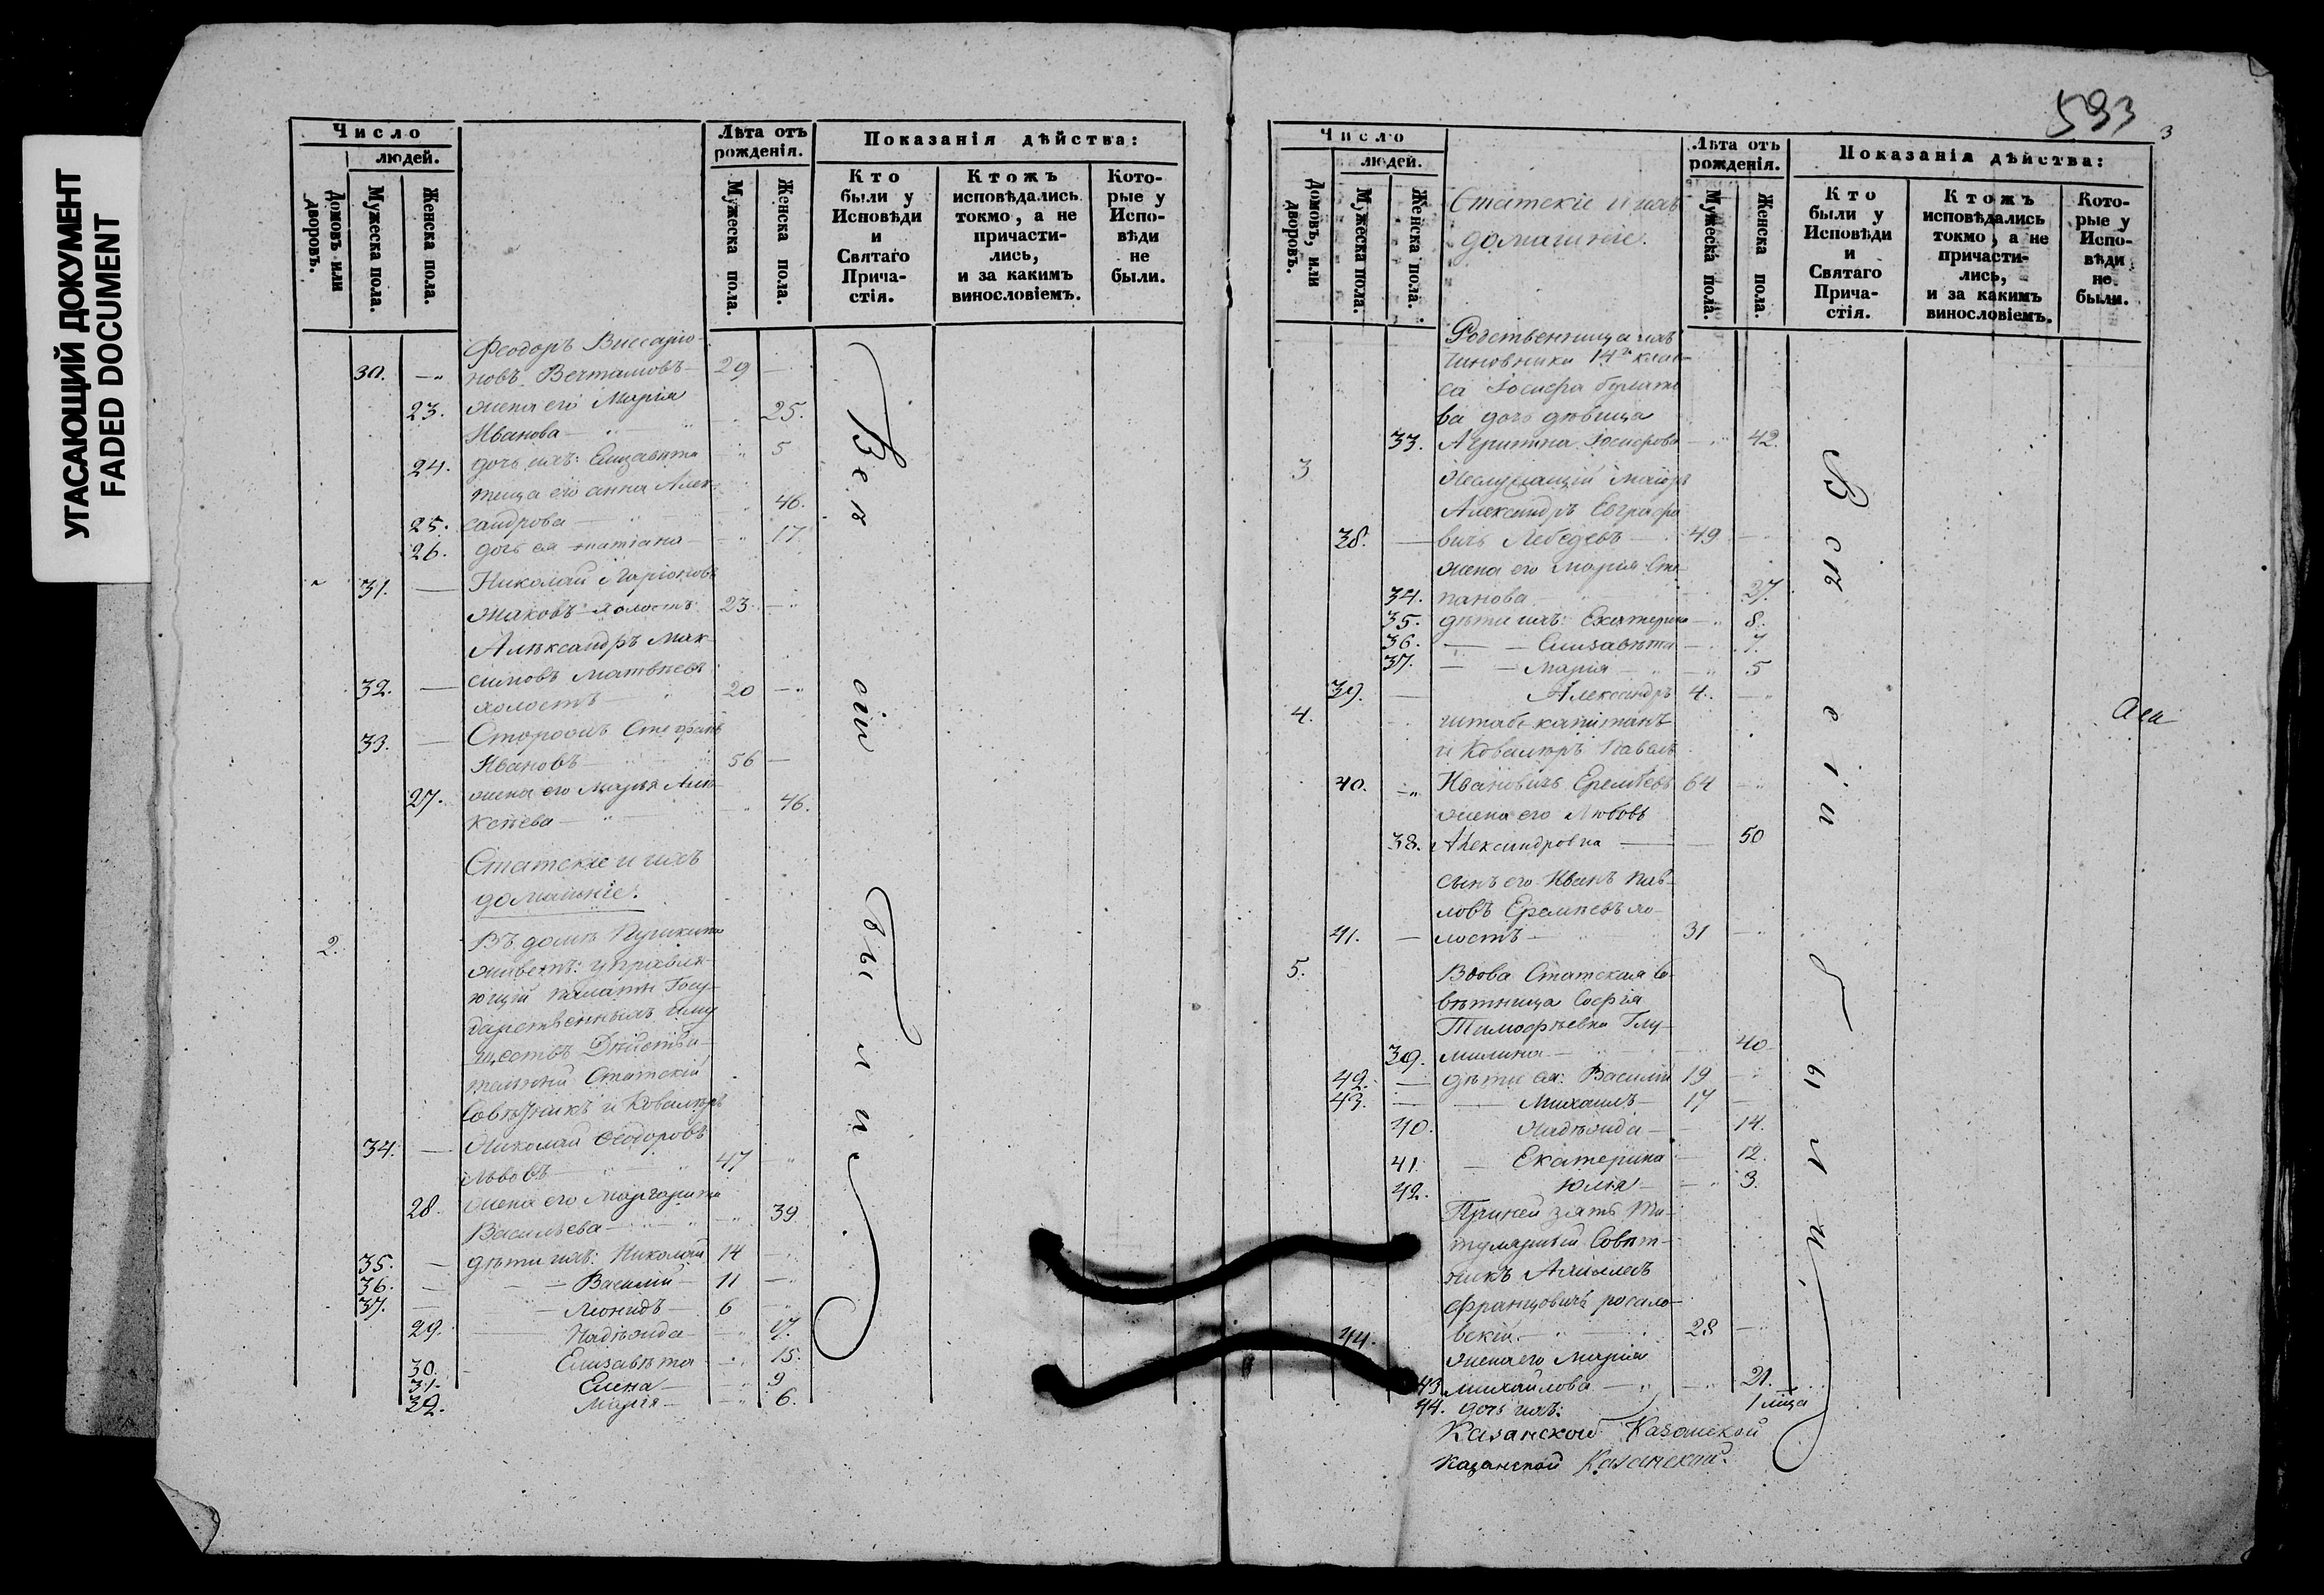 УГАСАЮЩИЙ ДОКУМЕНТ
FADED DOCUMENT
Число
людей.
Домовъ или дворовъ.
Мужеска пола.
Женска пола.
Лѣта отъ рожденія.
Мужеска пола.
Женска пола.
Показанія дѣйства:
Кто были у Исповѣди и Святаго Прича-стія.
Ктожъ исповѣдались токмо, а не причасти-лись, и за какимъ винословіемъ.
Кото-рые у Испо-вѣди не были.
Феодоръ Виссаріо-
30. новъ 29
23. жена его Марія
Иванова 25.
24. дочь ихъ: Елизавета 5
теща его Анна Алек-
25. сандрова 46.
26. дочь ея Татіана 17.
31. Николай Ларіоновъ
холостъ 23
Александръ Мак-
32. симовъ Матвѣевъ
холостъ 20
33. Сторожъ Стефанъ
Ивановъ 56
27. жена его Марья Але-
ксѣева 46.
Статскіе и ихъ
домашніе.
2. Въ домѣ Пушкина
живетъ: управля-
ющій палаты Госу-
дарственныхъ иму
ществъ Дѣйстви-
тельный Статскій
Совѣтникъ и Кавалеръ
34. Николай Феодоровъ
Львовъ 47
28. жена его Маргарита
Васильева 39
35. дѣти ихъ: Николай 14
36. Василій 11
37. Леонидъ 6
29. Надежда 17.
30. Елизавета 15.
31. Елена 9
32. Марія 6.
Всѣ сіи были
593
3
Число
людей.
Домовъ, или дворовъ.
Мужеска пола.
Женска пола.
Статскіе и ихъ
домашніе.
Лѣта отъ рожденія.
Мужеска пола.
Женска пола.
Показанія дѣйства:
Кто были у Исповѣди и Святаго Прича-стія.
Ктожъ исповѣдались токмо, а не причасти-лись, и за какимъ винословіемъ.
Кото-рые у Испо-вѣди не были.
Родственница ихъ
чиновника 14го клас-
са Іосифа
ва дочь дѣвица
33. Іосифова 42.
3 Неслужащій Маіоръ
Александръ Евграфо
38. вичь Лебедевъ 49
жена его Марія Сте-
34. панова 27.
35. дѣти ихъ: Екатерина 8.
36. Елизавета 7.
37. Марія 5
39. Александръ 4.
4. штабс капитанъ
и Кавалеръ Павелъ
40. Ивановичь Еремѣевъ 64
жена его Любовь
38. Александровна 50
сынъ его Иванъ Пав-
ловъ Еремѣевъ хо-
41. лостъ 31
5. Вдова Статская Со-
вѣтница Софія
Тимофѣевна Глу-
39. милина 40
42. дѣти ея: Василій 19
43. Михаилъ 17
40. Надежда 14.
41. Екатерина 12.
42. Юлія 3.
При ней зять Ти-
тулярный Совѣт-
никъ
Францовичь росало-
44. вскій 28
жена его Марія
43 Михайлова 21.
44. дочь ихъ: 1 мѣца
Казанской Казанской
Казанской Казанской.
Всѣ сіи были